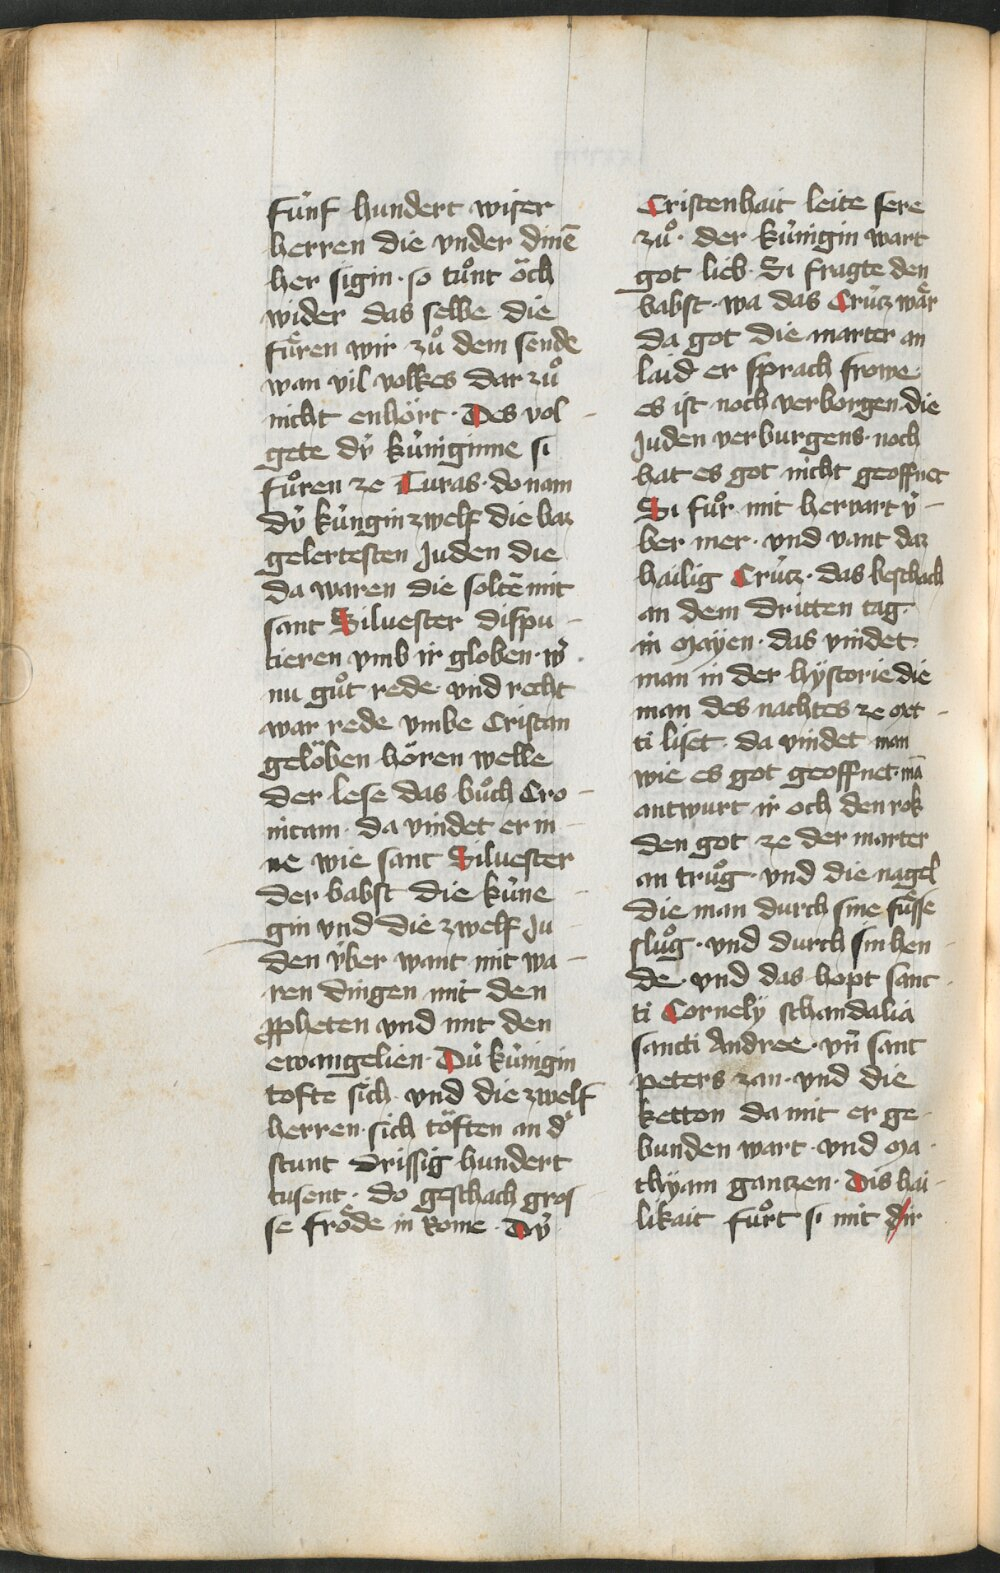 fúnf hundert wiser
herren die vnder dinē
her sigin · so tuͦnt oͤch
wider das selbe die
fuͤren wir zuͦ dem sende
wan vil volkes dar zuͦ
nicht enhoͤrt · Des vol -
gete dý kúniginne si
fuͦren ze Turas · do nam
dý kúngin zwelf die baz
gelertesten Juden die
da waren die soltē mit
sant Siluester dispu -
tieren vmb ir globen · w̾
nu guͦt rede vnd recht
war rede vmbe Cristan
geloͤben hoͤren welle
der lese das buͦch Cro -
nicam · da vindet er in -
ne wie sant Siluester
der babst die kúne -
gin vnd die zwelf Ju -
den v́ber want mit wa -
ren dingen mit den
ꝓpheten vnd mit den
ewangelien · Dú kúnigin
tofte sich vnd die zwelf
herren · sich toͤften an d̾
stunt drissig hundert
tusent · do geschach gros -
se froͤde in Rome · Dý
Cristenhait leite sere
zuͦ · der kúnigin wart
got lieb · Si fragte den
babst · wa das Crúcz waͤr
da got die marter an
laid er sprach frowe
es ist noch verborgen · die
Juden verburgens · noch
hat es got nicht geoffnet
Si fuͦr mit hervart v́ -
ber mer · vnd vant daz
hailig Crúcz · das beschach
an dem dritten tag ·
in Mayen · das vindet
man in der hýstorie die
man des nachtes ze met -
ti liset · da vindet man
wie es got geoffnet · mā
antwurt ir och den rok
den got ze der marter
an truͦg · vnd die nagel
die man durch sine fuͤsse
sluͦg · vnd durch sin hen -
de · vnd das hopt sanc -
ti Cornelý schandalia
sancti Andree · vn̄ sant
peters zan · vnd die
ketton da mit er ge -
bunden wart · vnd Ma -
thýam gantzen · Dis hai -
likait fuͦrt si mit dir